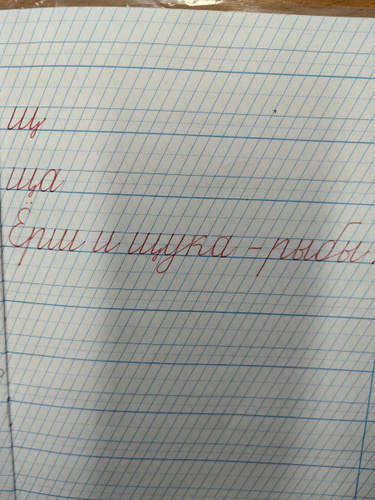 щ
ща
Ёрш и щука - рыбы.